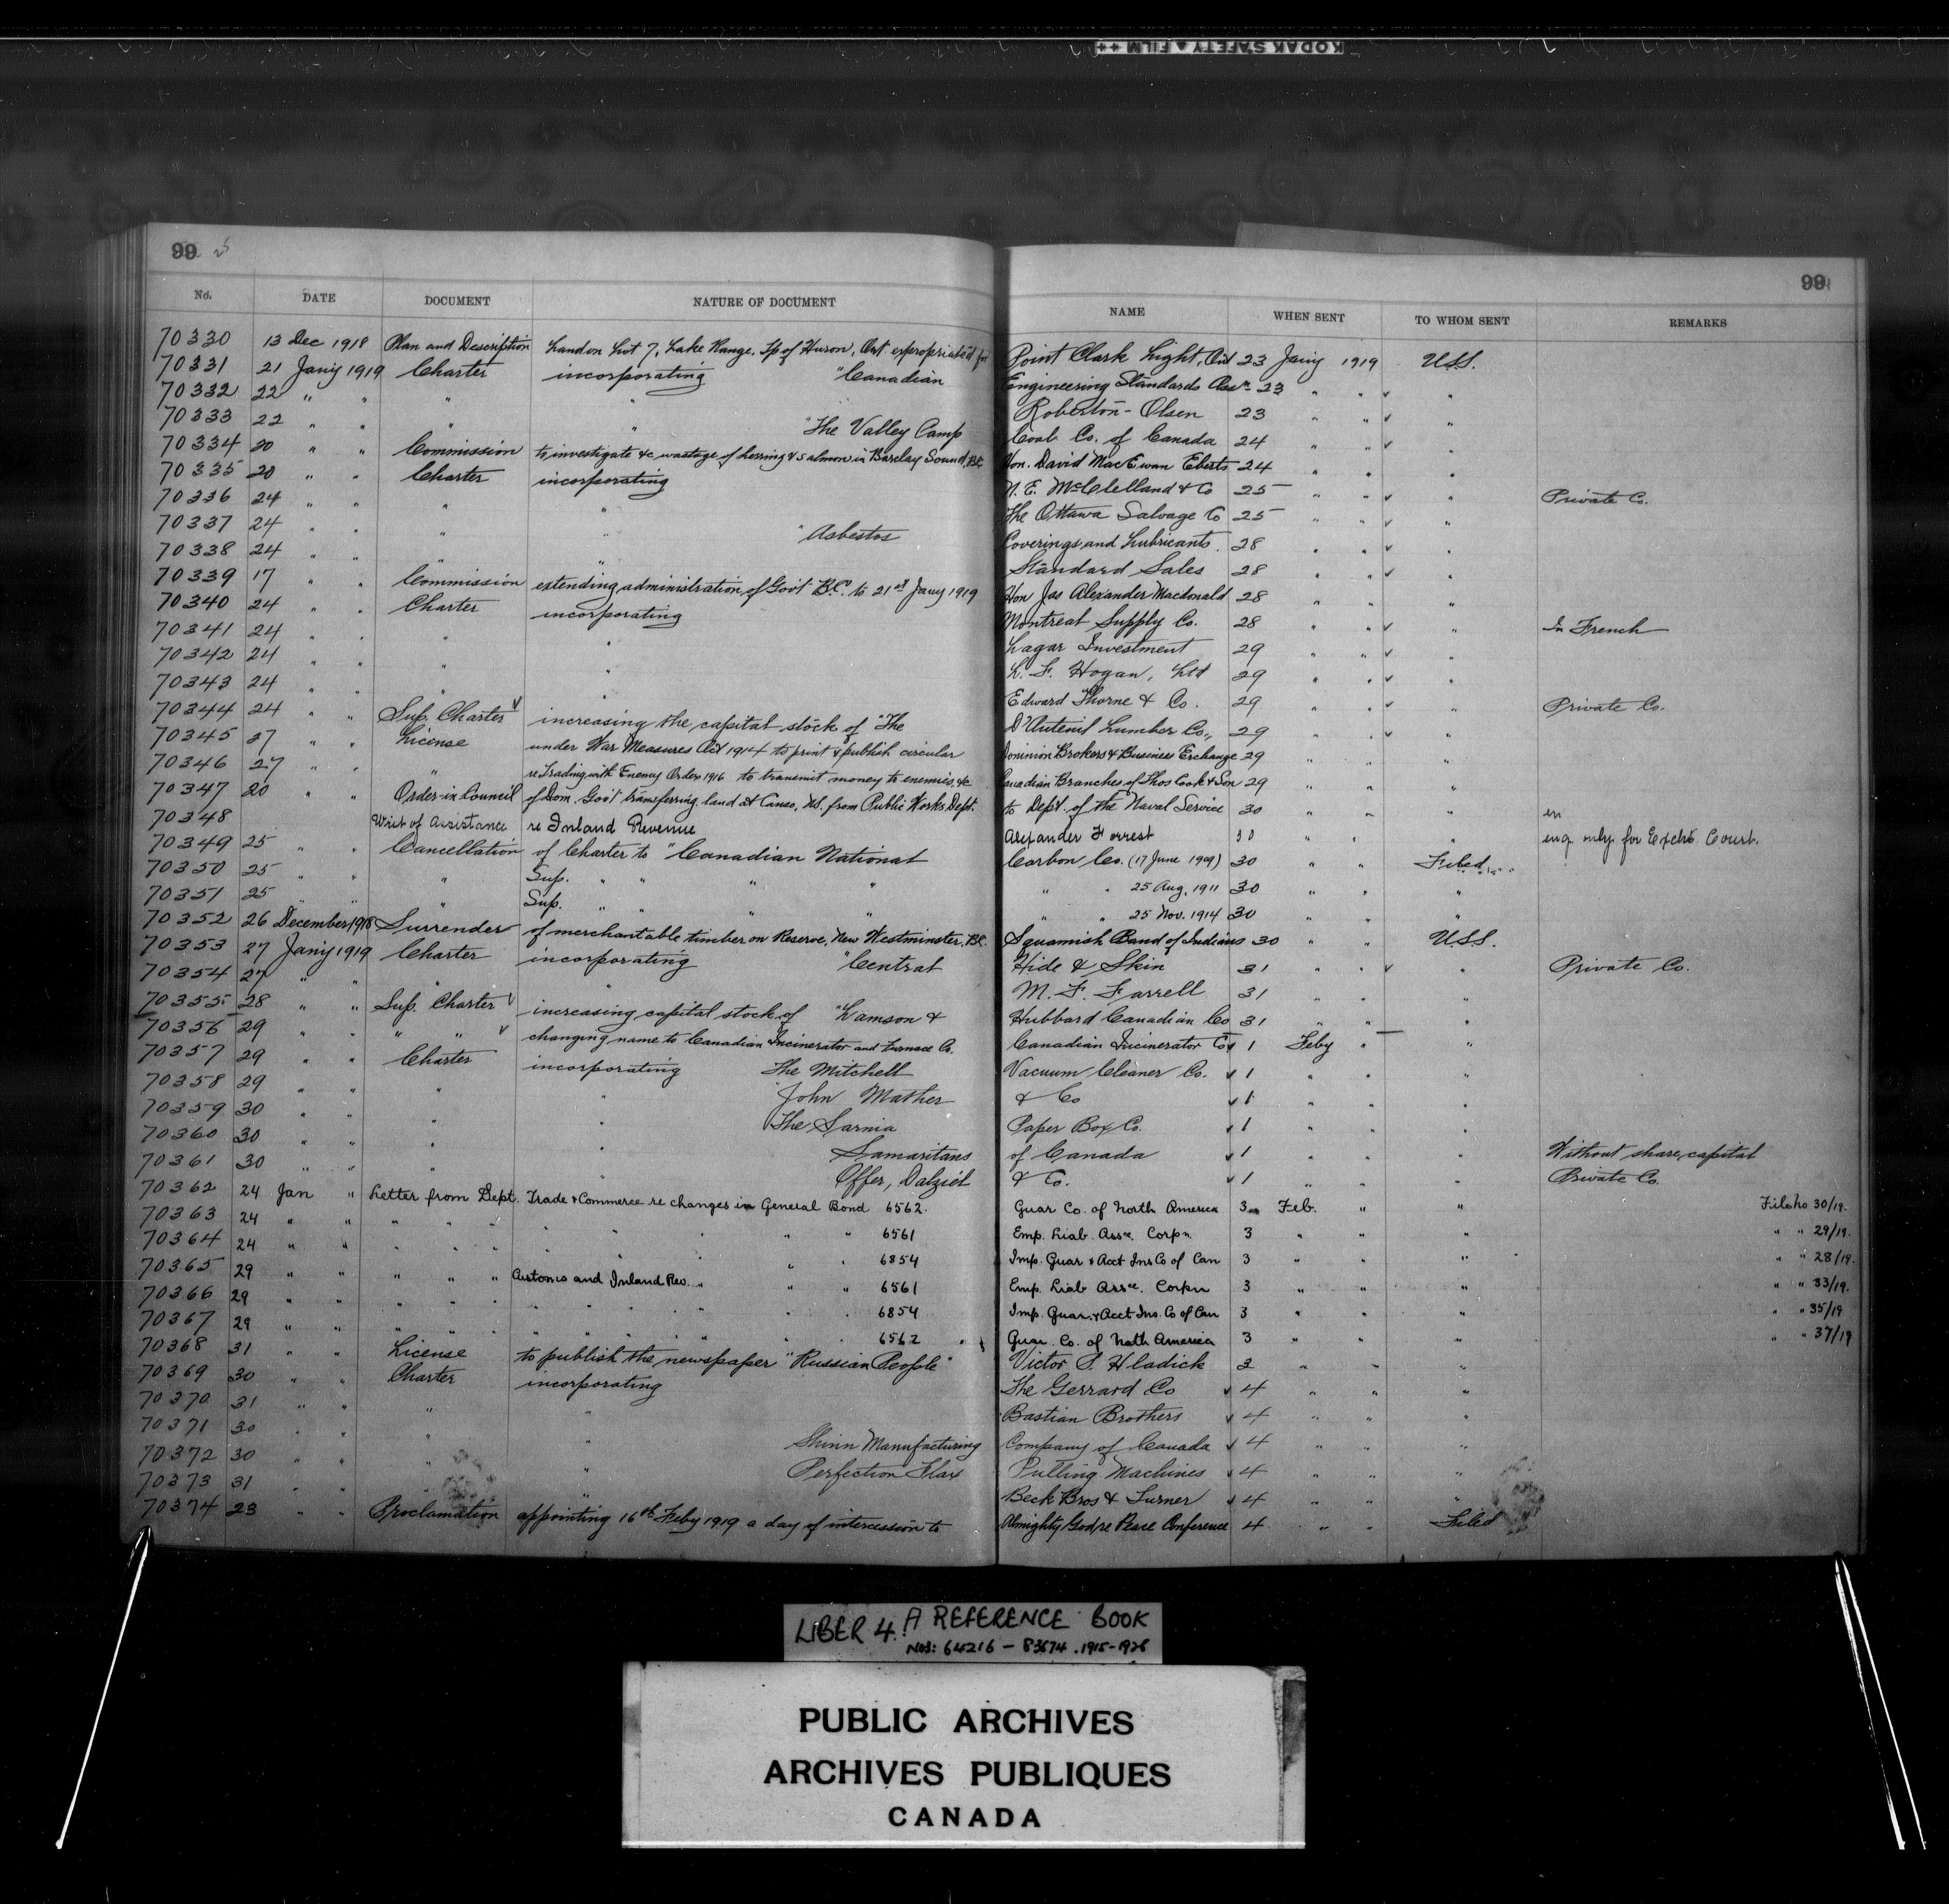 KODAK SAFETY FILM ++
99
99
No. DATE DOCUMENT NATURE OF DOCUMENT NAME WHEN SENT TO WHOM SENT REMARKS
70330 13 Dec 1918 Plan and Description Land on Lot 7, Lake Range, Tp of Huron, Ont expropriated for Point Clark Light, Ont 23 Jany 1919 U.S.S.
70331 21 Jany 1919 Charter incorporating "Canadian Engineering Standards Assn 23 " " ✓ "
70332 22 " " " " Roberton-Olsen 23 " " ✓ "
70333 22 " " " " "The Valley Camp Coal Co. of Canada 24 " " ✓ "
70334 20 " " Commission to investigate &c wastage of herring & salmon in Barclay Sound, B.C. Hon. David MacEwan Eberts 24 " " "
70335 20 " " Charter incorporating N. E. McClelland & Co 25 " " ✓ " Private Co.
70336 24 " " " " The Ottawa Salvage Co 25 " " ✓ "
70337 24 " " " " "Asbestos Coverings and Lubricants 28 " " ✓ "
70338 24 " " " " Standard Sales 28 " " ✓ "
70339 17 " " Commission extending administration of Gov't B.C. to 21st Jany 1919 Hon Jas Alexander Macdonald 28 " " "
70340 24 " " Charter incorporating Montreal Supply Co. 28 " " ✓ " In French
70341 24 " " " " Lagar Investment 29 " " ✓ "
70342 24 " " " " L. F. Hogan, Ltd 29 " " ✓ "
70343 24 " " " " Edward Thorne & Co. 29 " " ✓ " Private Co.
70344 24 " " Sup. Charter ✓ increasing the capital stock of "The D'Auteuil Lumber Co., 29 " " ✓ "
70345 27 " " License under War Measures Act 1914 to print & publish circular Dominion Brokers & Business Exchange 29 " " "
70346 27 " " " re Trading with Enemy Order 1916 to transmit money to enemies &c Canadian Branches of Thos Cook & Son 29 " " "
70347 20 " " Order-in-Council of Dom. Gov't transferring land at Canso, N.S. from Public Works Dept. to Dept. of the Naval Service 30 " " "
70348 Writ of Assistance re Inland Revenue Alexander Forrest 30 " " " eng. only for Exche. Court.
70349 25 " " Cancellation of Charter to "Canadian National Carbon Co. (17 June 1909) 30 " " Filed
70350 25 " " " Sup. " " " " " " 25 Aug. 1911 30 " " "
70351 25 " " " Sup. " " " " " " 25 Nov. 1914 30 " " "
70352 26 December 1918 Surrender of merchantable timber on Reserve, New Westminster, B.C. Squamish Band of Indians 30 " " U.S.S.
70353 27 Jany 1919 Charter incorporating "Central Hide & Skin 31 " " ✓ " Private Co.
70354 27 " " " " M. F. Farrell 31 " " "
70355 28 " " Sup. Charter ✓ increasing capital stock of "Lamson & Hubbard Canadian Co 31 " " "
70356 29 " " " " ✓ changing name to Canadian Incinerator and Furnace Co. Canadian Incinerator Co ✓ 1 Feby " "
70357 29 " " Charter incorporating The Mitchell Vacuum Cleaner Co. ✓ 1 " " "
70358 29 " " " " John Mather & Co ✓ 1 " " "
70359 30 " " " " The Sarnia Paper Box Co. ✓ 1 " " "
70360 30 " " " " Samaritans of Canada ✓ 1 " " " Without share capital
70361 30 " " " Offer, Dalziel & Co. ✓ 1 " " " Private Co.
70362 24 Jan " Letter from Dept. Trade & Commerce re changes in General Bond 6562. Guar Co. of North America 3 Feb. " " File No 30/19.
70363 24 " " " " " " " " 6561 Emp. Liab. Assce. Corpn. 3 " " " " " 29/19.
70364 24 " " " " " " " " 6854 Imp. Guar & Acct Ins Co of Can 3 " " " " " 28/19.
70365 29 " " " " " Customs and Inland Rev. " " " 6561 Emp. Liab Assce. Corpn 3 " " " " " 33/19.
70366 29 " " " " " " " " 6854 Imp. Guar. & Acct Ins. Co of Can 3 " " " " " 35/19
70367 29 " " " " " " " " 6562 Guar. Co. of North America 3 " " " " " 37/19
70368 31 " " License to publish the newspaper "Russian People" Victor P. Hladick 3 " " "
70369 30 " " Charter incorporating The Gerrard Co ✓ 4 " " "
70370 31 " " " " Bastian Brothers ✓ 4 " " "
70371 30 " " " " Shinn Manufacturing Company of Canada ✓ 4 " " "
70372 30 " " " " Perfection Flax Pulling Machines ✓ 4 " " "
70373 31 " " " " Beck Bros & Turner ✓ 4 " " "
70374 23 " " Proclamation appointing 16th Feby 1919 a day of intercession to Almighty God re Peace Conference 4 " " Filed
LIBER 4. A REFERENCE BOOK
NOS: 64216 - 83674 . 1915-1928
PUBLIC ARCHIVES
ARCHIVES PUBLIQUES
CANADA